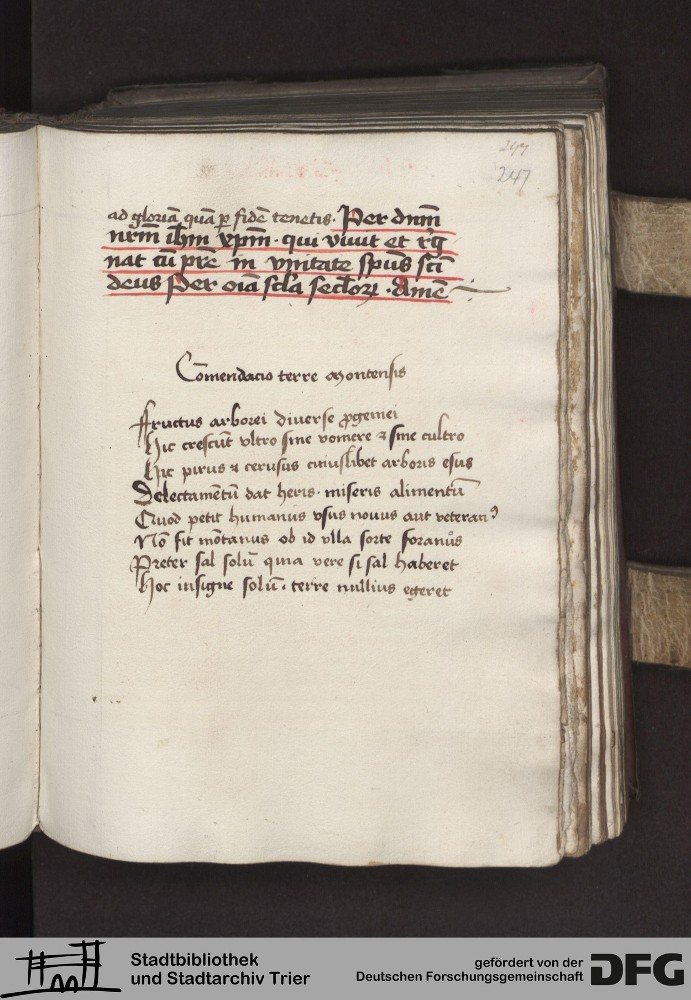 247
247
ad gloriā quā ꝑ fidē tenetis. Per dnm̄
nrm̄ ihm̄ xpm̄. qui viuit et reg
nat cū prē in vnitate spūs scī
deus Per oīa scl̄a secl̄oꝝ. Amē
Cōmendacio terre montensis
Fructus arborei diuerse ꝓgeniei
Hic crescūt vltro sine vomere ⁊ sine cultro
Hic pirus ⁊ cerusus cuiuslibet arboris esus
Delectamētū dat heris. miseris alimentū
Quod petit humanus vsus nouus aut veteranꝰ
Nō fit mōtanus ob id vlla sorte foranus
Preter sal solū quia vere si sal haberet
Hoc insigne solū. terre nullius egeret
Stadtbibliothek
und Stadtarchiv Trier
gefördert von der
Deutschen Forschungsgemeinschaft
DFG